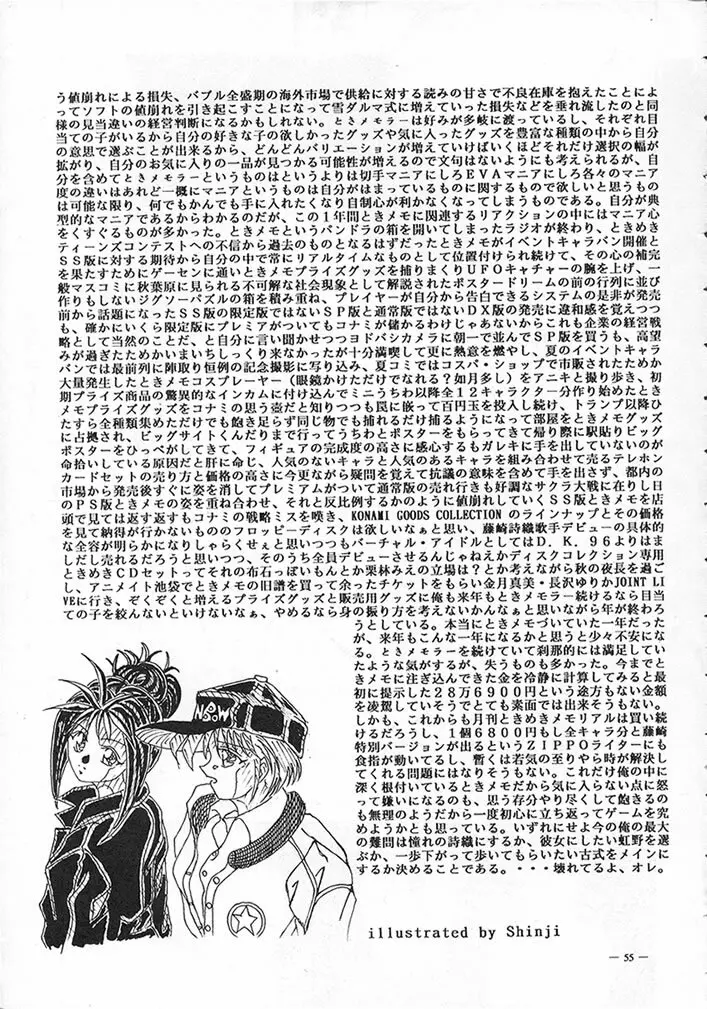 う値崩れによる損失、バブル全盛期の海外市場で供給に対する読みの甘さで不良在庫を抱えたことによ
ってソフトの値崩れを引き起こすことになって雪ダルマ式に増えていった損失などを垂れ流したのと同
様の見当違いの経営判断になるかもしれない。ときメモラーは好みが多岐に渡っているし、それぞれ目
当ての子がいるから自分の好きな子の欲しかったグッズや気に入ったグッズを豊富な種類の中から自分
の意思で選ぶことが出来るから、どんどんバリエーションが増えていけばいくほどそれだけ選択の幅が
拡がり、自分のお気に入りの一品が見つかる可能性が増えるので文句はないようにも考えられるが、自
分を含めてときメモラーというものはというよりは切手マニアにしろEVAマニアにしろ各々のマニア
度の違いはあれど一概にマニアというものは自分がはまっているものに関するもので欲しいと思うもの
は可能な限り、何でもかんでも手に入れたくなり自制心が利かなくなってしまうものである。自分が典
型的なマニアであるからわかるのだが、この1年間ときメモに関連するリアクションの中にはマニア心
をくすぐるものが多かった。ときメモというパンドラの箱を開いてしまったラジオが終わり、ときめき
ティーンズコンテストへの不信から過去のものとなるはずだったときメモがイベントキャラバン開催と
SS版に対する期待から自分の中で常にリアルタイムなものとして位置付けられ続けて、その心の補完
を果たすためにゲーセンに通いときメモプライズグッズを捕りまくりUFOキャッチャーの腕を上げ、一
般マスコミに秋葉原に見られる不可解な社会現象として解説されたポスタードリームの前の行列に並び
作りもしないジグソーパズルの箱を積み重ね、プレイヤーが自分から告白できるシステムの是非が発売
前から話題になったSS版の限定版ではないSP版と通常版ではないDX版の発売に違和感を覚えつつ
も、確かにいくら限定版にプレミアがついてもコナミが儲かるわけじゃあないからこれも企業の経営戦
略として当然のことだ、と自分に言い聞かせつつヨドバシカメラに朝一で並んでSP版を買うも、高望
みが過ぎたためかいまいちしっくり来なかったが十分満喫して更に熱意を燃やし、夏のイベントキャラ
バンでは最前列に陣取り恒例の記念撮影に写り込み、夏コミではコスパ・ショップで市販されたためか
大量発生したときメモコスプレーヤー(眼鏡かけただけでなれる?如月多し)をアニキと撮り歩き、初
期プライズ商品の驚異的なインカムに付け込んでミニうちわ以降全12キャラクター分作り始めたとき
メモプライズグッズをコナミの思う壺だと知りつつも罠に嵌って百円玉を投入し続け、トランプ以降ひ
たすら全種類集めただけでも飽き足らず同じ物でも捕れるだけ捕るようになって部屋をときメモグッズ
に占拠され、ビッグサイトくんだりまで行ってうちわとポスターをもらってきて帰り際に駅貼りビッグ
ポスターをひっぺがしてきて、フィギュアの完成度の高さに感心するもガレキに手を出していないのが
命拾いしている原因だと肝に命じ、人気のないキャラと人気のあるキャラを組み合わせて売るテレホン
カードセットの売り方と価格の高さに今更ながら疑問を覚えて抗議の意味を含めて手を出さず、都内の
市場から発売後すぐに姿を消してプレミアムがついて通常版の売れ行きも好調なサクラ大戦に在りし日
のPS版ときメモの姿を重ね合わせ、それと反比例するかのように値崩れしていくSS版ときメモを店
頭で見ては返す返すもコナミの戦略ミスを嘆き、KONAMI GOODS COLLECTION のラインナップとその価格
を見て納得が行かないもののフロッピーディスクは欲しいなぁと思い、藤崎詩織歌手デビューの具体的
な全容が明らかになりしゃらくせぇと思いつつもバーチャル・アイドルとしてはD.K.96よりはま
しだし売れるだろうと思いつつ、そのうち全員デビューさせるんじゃねえかディスクコレクション専用
ときめきCDセットってそれの布石っぽいもんとか栗林みえの立場は?とか考えながら秋の夜長を過ご
し、アニメイト池袋でときメモの旧譜を買って余ったチケットをもらい金月真美・長沢ゆりかJOINT LI
VEに行き、ぞくぞくと増えるプライズグッズと販売用グッズに俺も来年もときメモラー続けるなら目当
ての子を絞んないといけないなぁ、やめるなら身の振り方を考えないかんなぁと思いながら年が終わろ
うとしている。本当にときメモづいていた一年だった
が、来年もこんな一年になるかと思うと少々不安にな
る。ときメモラーを続けていて刹那的には満足してい
たような気がするが、失うものも多かった。今までと
きメモに注ぎ込んできた金を冷静に計算してみると最
初に提示した28万6900円という途方もない金額
を凌駕していそうでとても素面では出来そうもない。
しかも、これからも月刊ときめきメモリアルは買い続
けるだろうし、1個6800円もし全キャラ分と藤崎
特別バージョンが出るというZIPPOライターにも
食指が動いてるし、暫くは若気の至りやら時が解決し
てくれる問題にはなりそうもない。これだけ俺の中に
深く根付いているときメモだから気に入らない点に怒
って嫌いになるのも、思う存分やり尽くして飽きるの
も無理のようだから一度初心に立ち返ってゲームを究
めようかとも思っている。いずれにせよ今の俺の最大
の難問は憧れの詩織にするか、彼女にしたい虹野を選
ぶか、一歩下がって歩いてもらいたい古式をメインに
するか決めることである。・・・壊れてるよ、オレ。
illustrated by Shinji
— 55 —